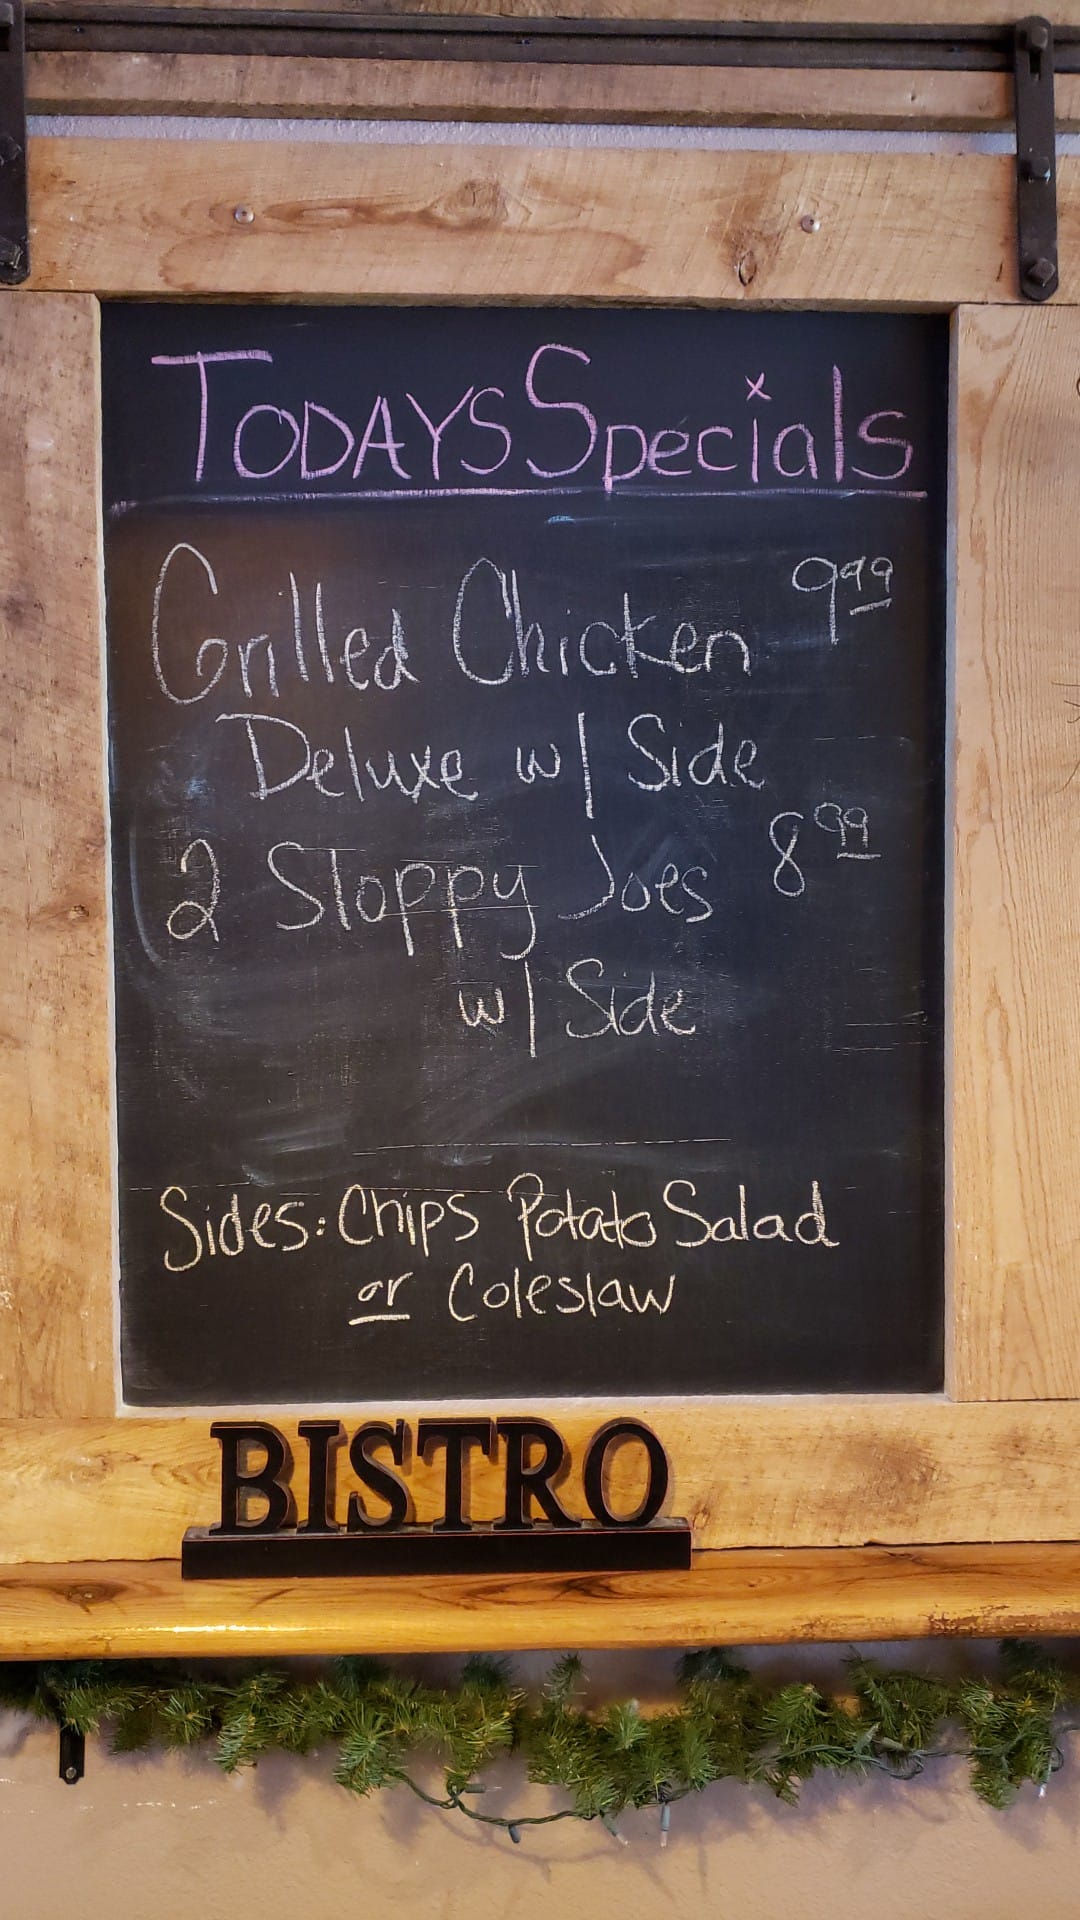 TODAYS Specials
Grilled Chicken 9.99
Deluxe w/ Side
2 Sloppy Joes 8.99
w/ Side
Sides: Chips Potato Salad
or Coleslaw
BISTRO